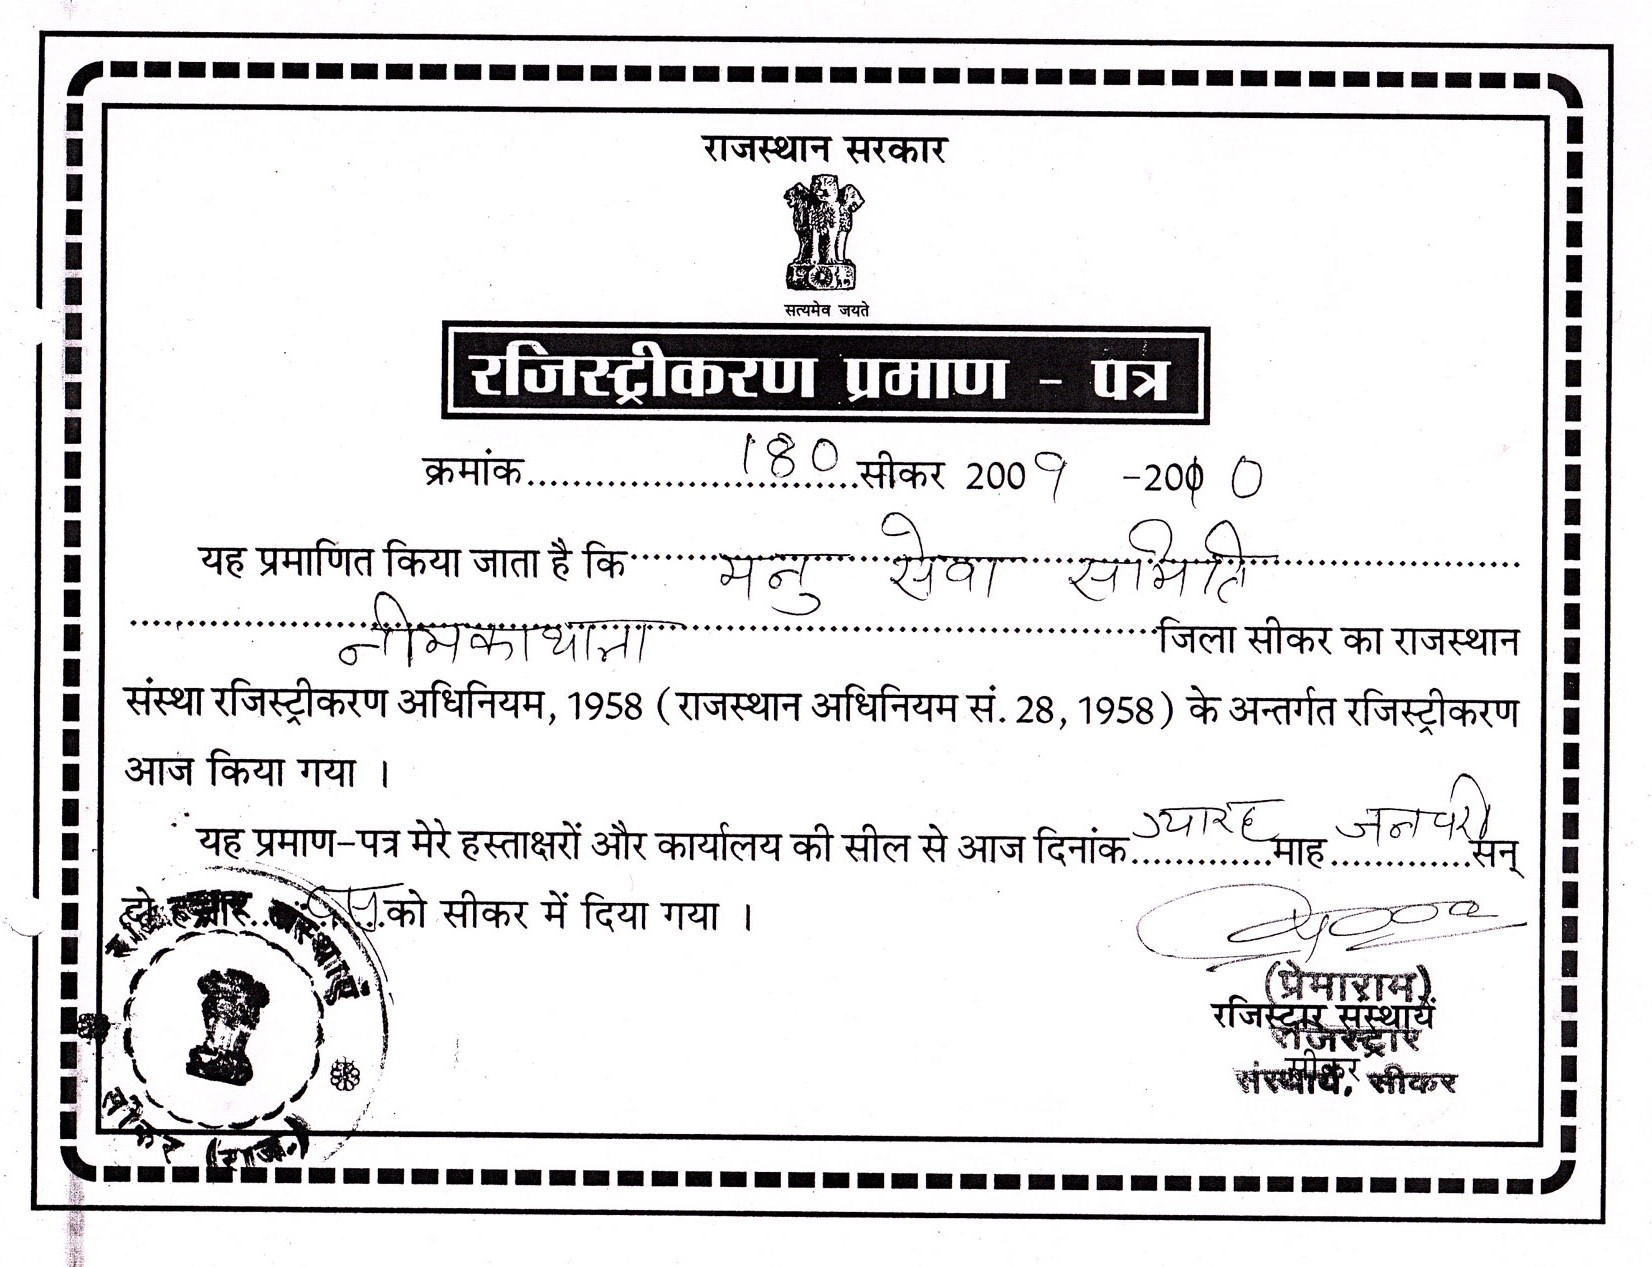 राजस्थान सरकार
सत्यमेव जयते
रजिस्ट्रीकरण प्रमाण - पत्र
क्रमांक............................180..सीकर 2009 -2010
यह प्रमाणित किया जाता है कि मनु सेवा समिति
नीमकाथाना जिला सीकर का राजस्थान
संस्था रजिस्ट्रीकरण अधिनियम, 1958 (राजस्थान अधिनियम सं. 28, 1958) के अन्तर्गत रजिस्ट्रीकरण
आज किया गया ।
यह प्रमाण-पत्र मेरे हस्ताक्षरों और कार्यालय की सील से आज दिनांक ग्यारह माह जनवरी सन्
दो हजार दस को सीकर में दिया गया ।
(प्रेमाराम)
रजिस्ट्रार संस्थायें
रजिस्ट्रार
सीकर
संस्थायें, सीकर
सीकर (राज.)